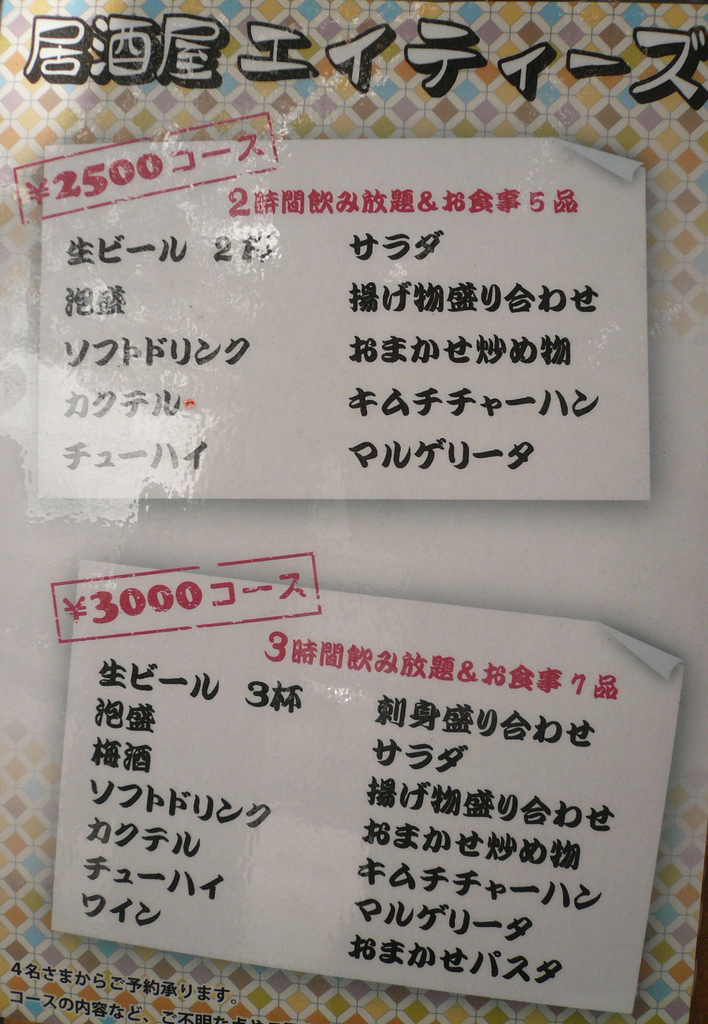 居酒屋 エイティーズ
¥2500コース
2時間飲み放題&お食事5品
生ビール 2杯
泡盛
ソフトドリンク
カクテル
チューハイ
サラダ
揚げ物盛り合わせ
おまかせ炒め物
キムチチャーハン
マルゲリータ
¥3000コース
3時間飲み放題&お食事7品
生ビール 3杯
泡盛
梅酒
ソフトドリンク
カクテル
チューハイ
ワイン
刺身盛り合わせ
サラダ
揚げ物盛り合わせ
おまかせ炒め物
キムチチャーハン
マルゲリータ
おまかせパスタ
4名さまからご予約承ります。
コースの内容など、ご不明な点や